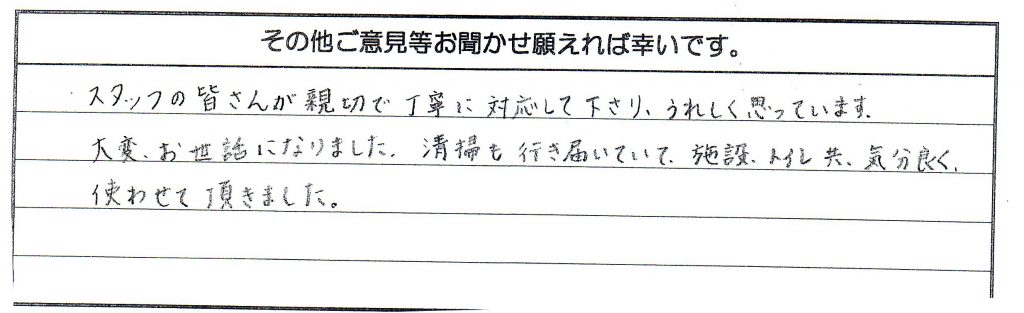 その他ご意見等お聞かせ願えれば幸いです。
スタッフの皆さんが親切で丁寧に対応して下さり、うれしく思っています。
大変、お世話になりました。清掃も行き届いていて、施設、トイレ共、気分良く、
使わせて頂きました。